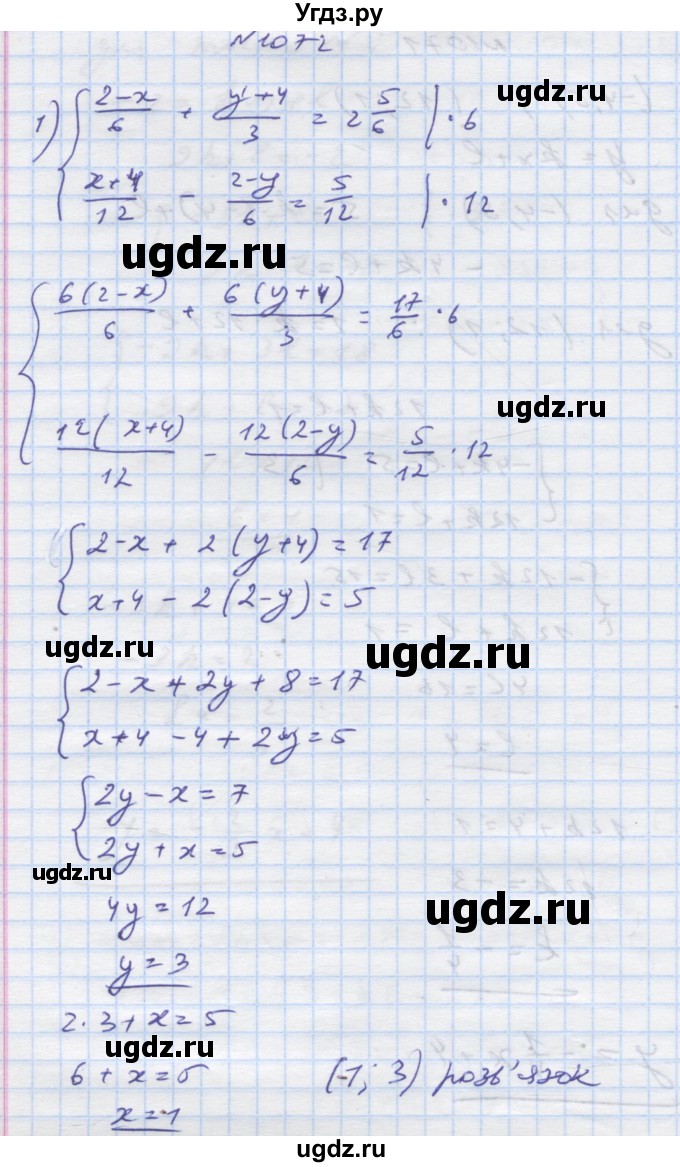 Угдз.ру
№1072
1) { (2-x)/6 + (y+4)/3 = 2 5/6 | · 6
(x+4)/12 - (2-y)/6 = 5/12 | · 12
ugdz.ru
ugdz.ru
{ 6(2-x)/6 + 6(y+4)/3 = 17/6 · 6
ugdz.ru
12(x+4)/12 - 12(2-y)/6 = 5/12 · 12
{ 2-x + 2(y+4) = 17
x+4 - 2(2-y) = 5
ugdz.ru
ugdz.ru
{ 2-x+2y+8=17
x+4-4+2y=5
{ 2y-x=7
2y+x=5
ugdz.ru
4y=12
ugdz.ru
y=3
2·3+x=5
ugdz.ru
6+x=5
(-1; 3) розв'язок
x=-1
ugdz.ru